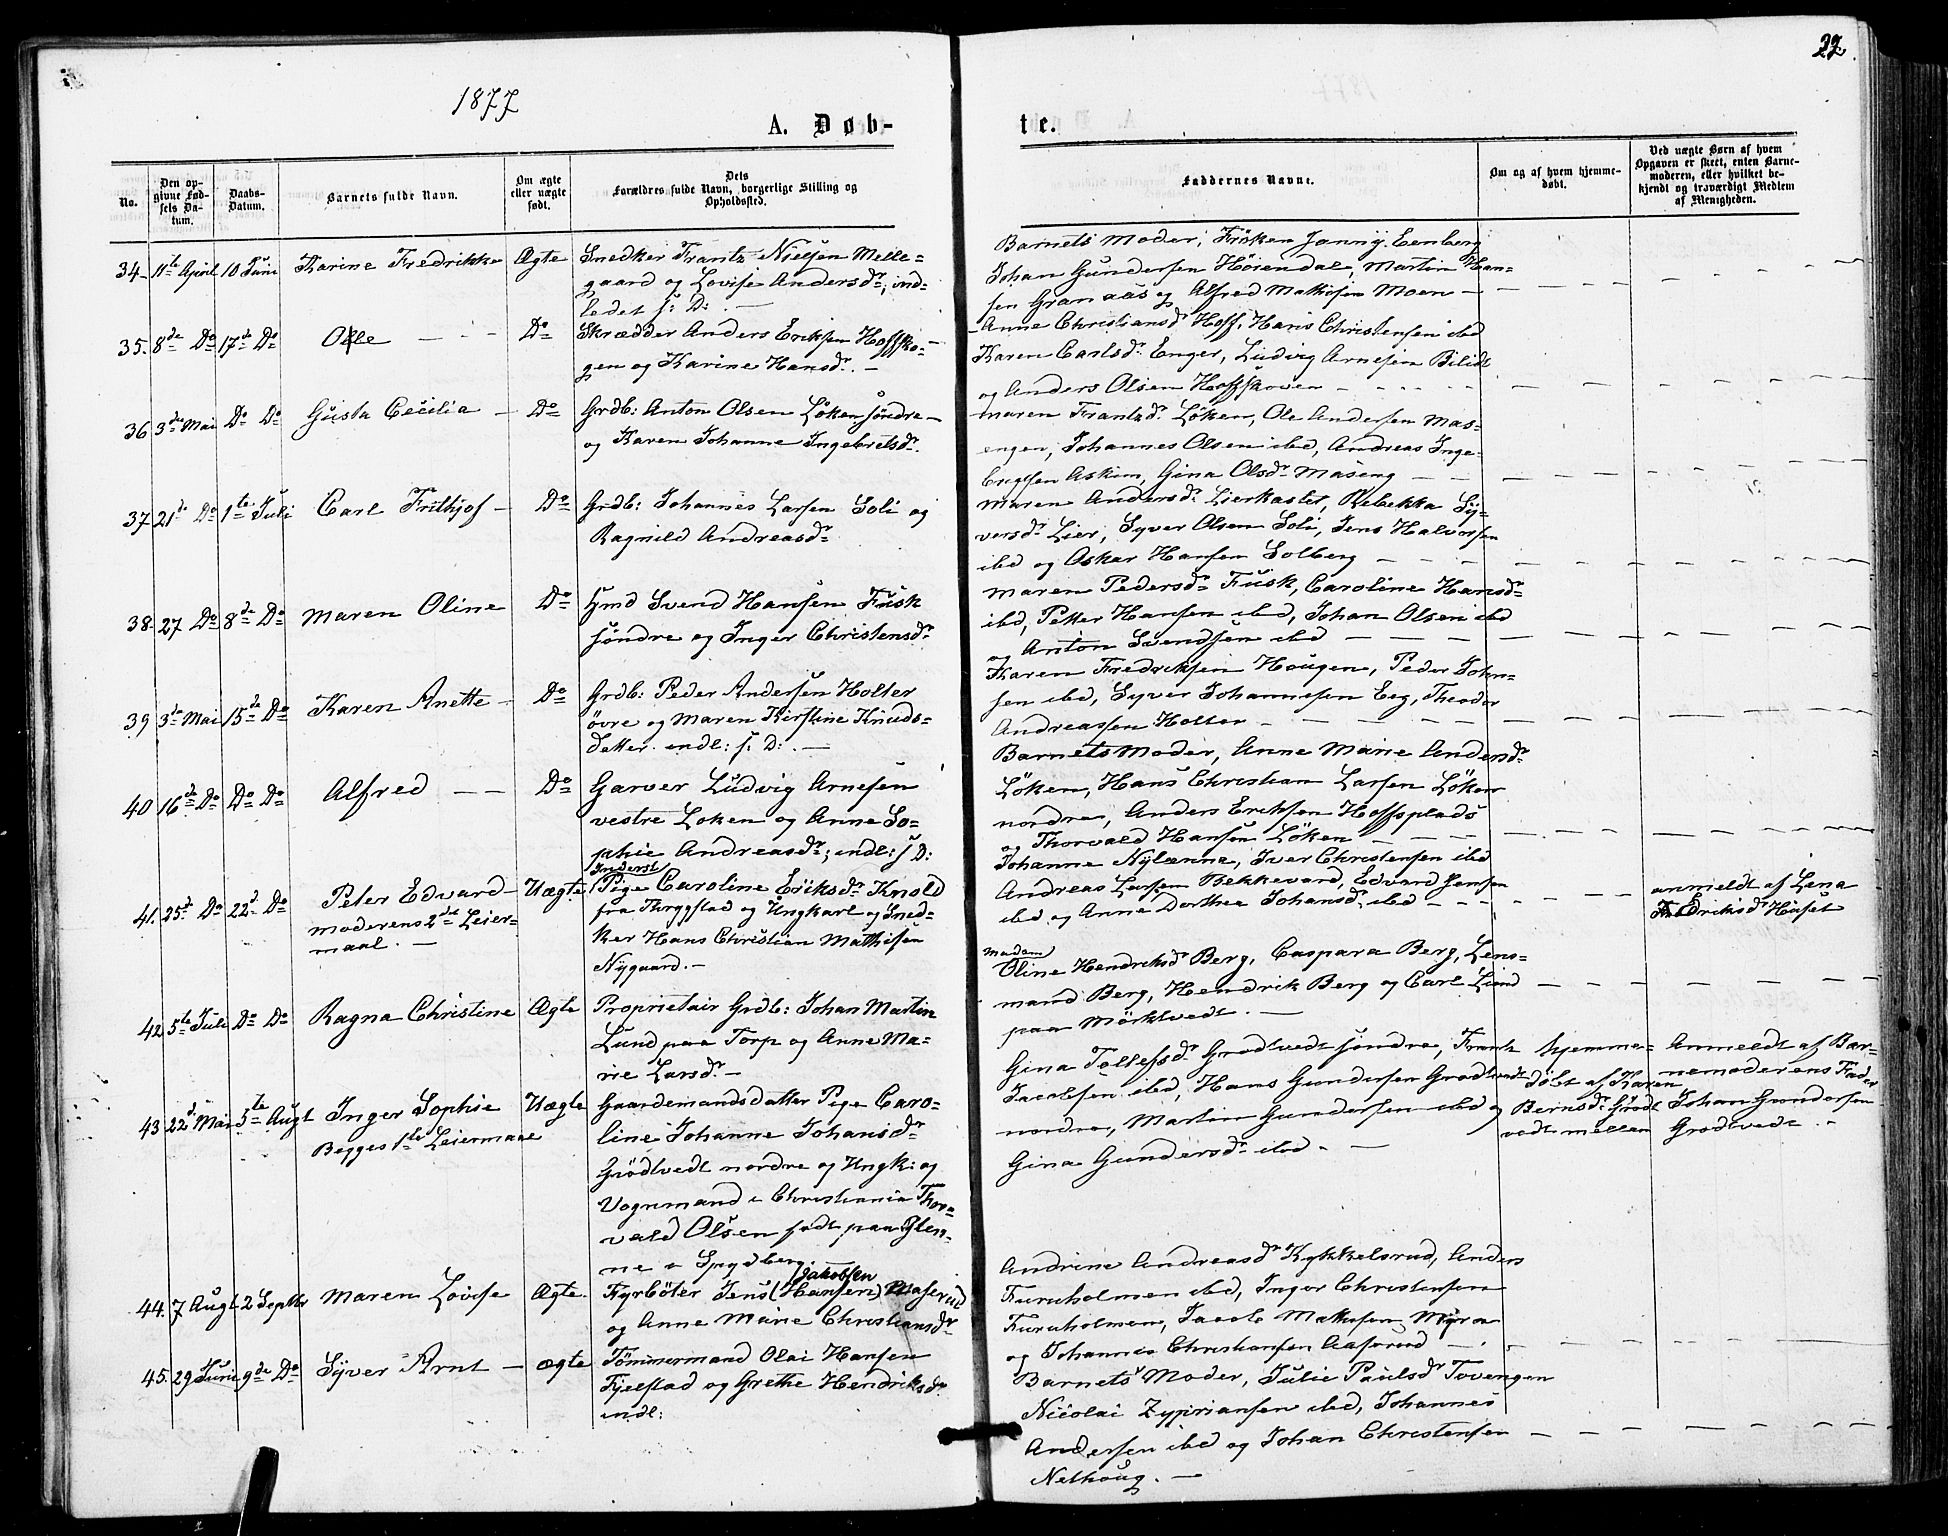 1877
22.
A. Døb-
te.
No.
Den op-
givne Fød-
sels Da-
tum.
Daabs-
Datum.
Barnets fulde Navn.
Om ægte
eller uægte
født.
Dets
Forældres fulde Navn, borgerlige Stilling og
Opholdssted.
Faddernes Navne.
Om og af hvem hjemme-
døbt.
Ved uægte Børn af hvem
Opgaven er skeet, enten Barne-
moderen, eller hvilket be-
kjendt og troværdigt Medlem
af Menigheden.
34 11te April 10 Juni Karine Fredrikke Ægte Snedker Frantz Nielsen Melle-
gaard og Lovise Andersdr, ind-
ledet s: D:
Barnets Moder, Frøken Janny Eenberg
Johan Gundersen Høiendal, Martin Han-
sen Granaas og Alfred Mathisen Moen
35. 8de Do 17de Do Ole Do Skrædder Anders Eriksen Hoffsko-
gen og Karine Hansdr.
Anne Christiansdr Hoff, Hans Christensen ibd
Karen Carlsdr Enger, Ludvig Arnesen Bilidt
og Anders Olsen Hoffskoven
36 3de Mai Do Do Gusta Cecilia Do Grdb: Anton Olsen Løken søndre
og Karen Johanne Ingebretsdr.
Maren Frantsdr. Løken, Ole Andersen Mas-
engen, Johannes Olsen ibd, Andreas Inge-
brigtsen Askim, Gina Olsdr Maseng
37 21de Do 1te Juli Carl Frithjof Do Grdb: Johannes Larsen Soli og
Ragnild Andreasdr
Maren Andersdr. Lierkastet, Rebekka Sy-
versdr Lier, Syver Olsen Soli, Jens Halvorsen
ibd og Oskar Hansen Solberg
38. 27 Do 8de Do Maren Oline Do Hmd Svend Hansen Fusk
søndre og Inger Christensdr
Maren Pedersdr Fusk, Caroline Hansdr
ibd, Petter Hansen ibd, Johan Olsen ibd
og Anton Svendsen ibd
39 3de Mai 15de Do Karen Anette Do Grdb: Peder Andersen Holter
øvre og Maren Kirstine Knuds-
datter. indl: s: D:
Karen Fredriksen Hougen, Peder John-
sen ibd, Syver Johannesen Eeg, Theodor
Andreassen Holter
40 16de Do Do Do Alfred Do Garver Ludvig Arnesen
vestre Løken og Anne So-
phie Andreasdr; indl: s D:
Barnets Moder, Anne Marie Andersdr
Løken, Hans Christian Larsen Løken
nordre, Anders Eriksen Hoffsplads
og Thorvald Hansen Løken
41. 25de Do 22de Do Peter Edvard Uægte Inderst
Pige Caroline Eriksdr Knold
moderens 2det Leier-
maal.
fra Thrygstad og Ungkarl og Sned-
ker Hans Christian Mathisen
Nygaard.
Johanne Nylænna, Iver Christensen ibd
Andreas Larsen Bekkevard, Edvard Jensen
ibd og Anne Dorthea Johansdr. ibd
anmeldt af Lena
Fredriksdr Huset
42 5te Juli Do Do Ragna Christine Ægte Proprietair Grdb: Johan Martin
Lund paa Torp og Anne Ma-
rie Larsdr
Madam
Oline Hendriksdr Berg, Caspara Berg, Lens-
mand Berg, Hendrik Berg og Carl Lund
paa Mörktvedt.
43 22de Mai 5te Augt Inger Sophie Uægte Gaardemandsdatter Pige Caro-
Begges 1ste Leiermaal
line Johanne Johansdr
Grödtvedt nordre og Ungk: og
Vognmand i Christiania Thor-
vald Olsen født paa Glen-
ne i Spydberg
Gina Tollefsdr Grodtvedt søndre, Frantz
Jacobsen ibd, Hans Gundersen Grodtvedt
nordre, Martin Gundersen ibd og
Gina Gundersdr ibd
hjemme-
døbt af Karen
Berntsdr Grødt
vedt mellem
Anmeldt af Bar-
nemoderens Fader
Johan Gundersen
Grodtvedt.
44. 7 Augt 2 Septbr Maren Lovise Ægte. Fyrbøter Jens (Hansen) Jakobsen Maserud
og Anne Marie Christiansdr
Andrine Andreasdr Kykkelsrud, Anders
Furuholmen ibd, Inger Christensen
Furuholmen, Jacob Mathisen Myra
og Johannes Christiansen Aaserud
45. 29 Juni 9de Do Syver Arnt Ægte Tömmermand Olai Hansen
Fjelstad og Grethe Hendriksdr
indl:
Barnets Moder, Julie Paulsdr Tovengen
Nicolai Zypriansen ibd, Johannes
Andersen ibd og Johan Christensen
Nethoug.